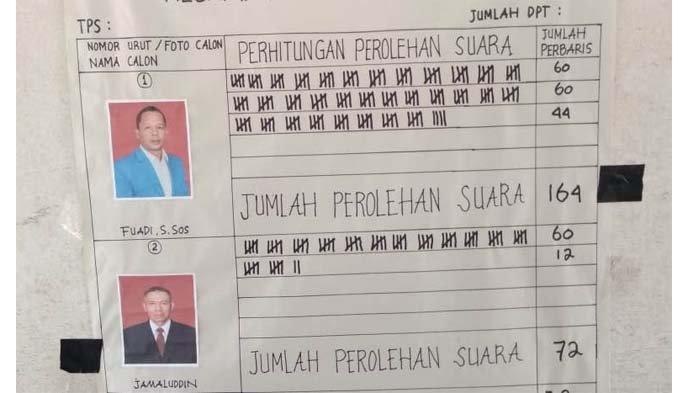 TPS :
JUMLAH DPT :
NOMOR URUT / FOTO CALON
NAMA CALON
PERHITUNGAN PEROLEHAN SUARA
JUMLAH
PERBARIS
1
60
60
44
JUMLAH PEROLEHAN SUARA
164
FUADI, S.SOS
2
60
12
JUMLAH PEROLEHAN SUARA
72
JAMALUDDIN